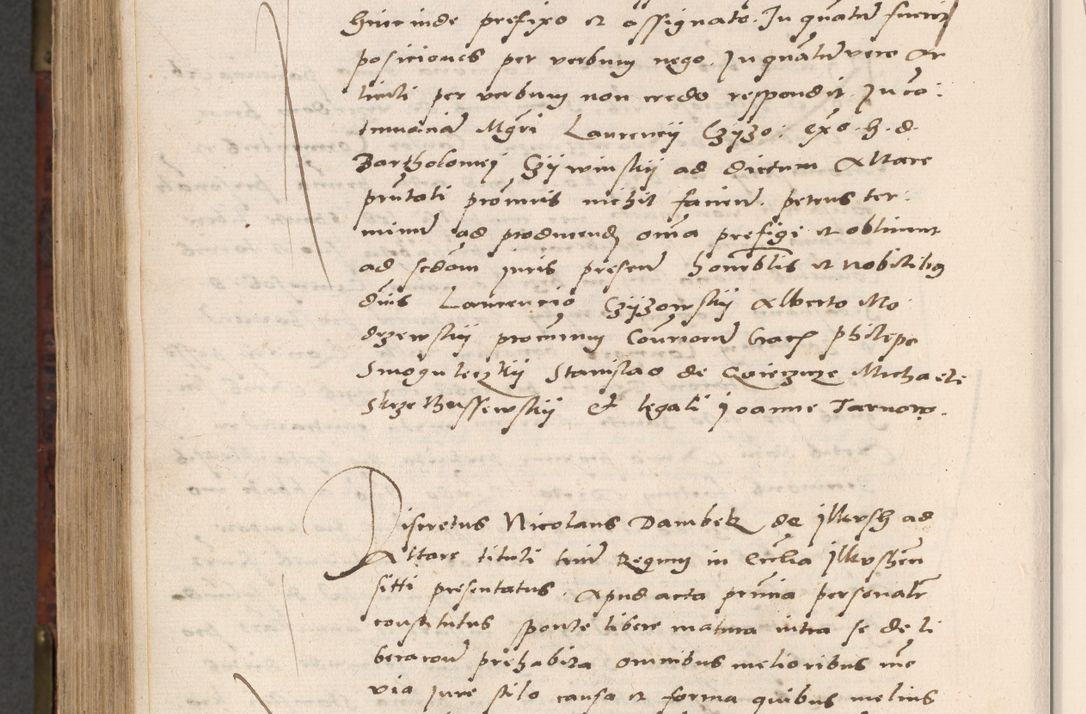 hincinde prefixo et assignato. In quantum fuerint
posiciones per verbum nego. In quantum vero Ar
ticuli per verbum non credo respondit. In co:
tumaciam Mgri Laurencij Czyzo: exo. h. d.
Bartholomej Czÿwinskÿ ad dictum Altare
prntati procuris nichil facien. petens ter:
minum ad producend omnia prefigi et obtinuit
ad sedam juris presen honorablis et nobilibus
dnis Laurencio Czyzowskÿ Alberto Mo
drzewskÿ procurm Consiorum Grac Philipo
Smoguleczkÿ Stanislao de Michaele
Et legali Joanne Tarnow.
Discretus Nicolaus Dambek de Ilkush ad
Altare tituli trium Regum in Ecclia Ilkushien
sitti presentatus. Apud acta prnia personalr
constitutus sponte libere matura intra se deli
beracione prehabita omnibus melioribus mo
via jure stilo causa et forma quibus melius